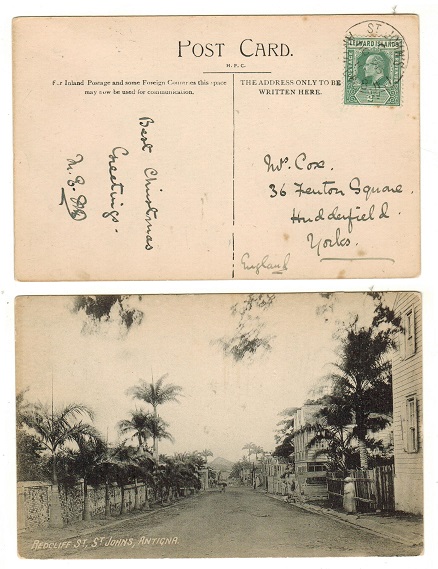 POST CARD.
H. P. C.
For Inland Postage and some Foreign Countries this space
may now be used for communication.
THE ADDRESS ONLY TO BE
WRITTEN HERE.
LEEWARD ISLANDS
ST. JOHN
Best Christmas
Greetings.
Mr. Cox.
36 Fenton Square.
Huddersfield.
Yorks.
England
REDCLIFF ST, ST JOHNS, ANTIGUA.